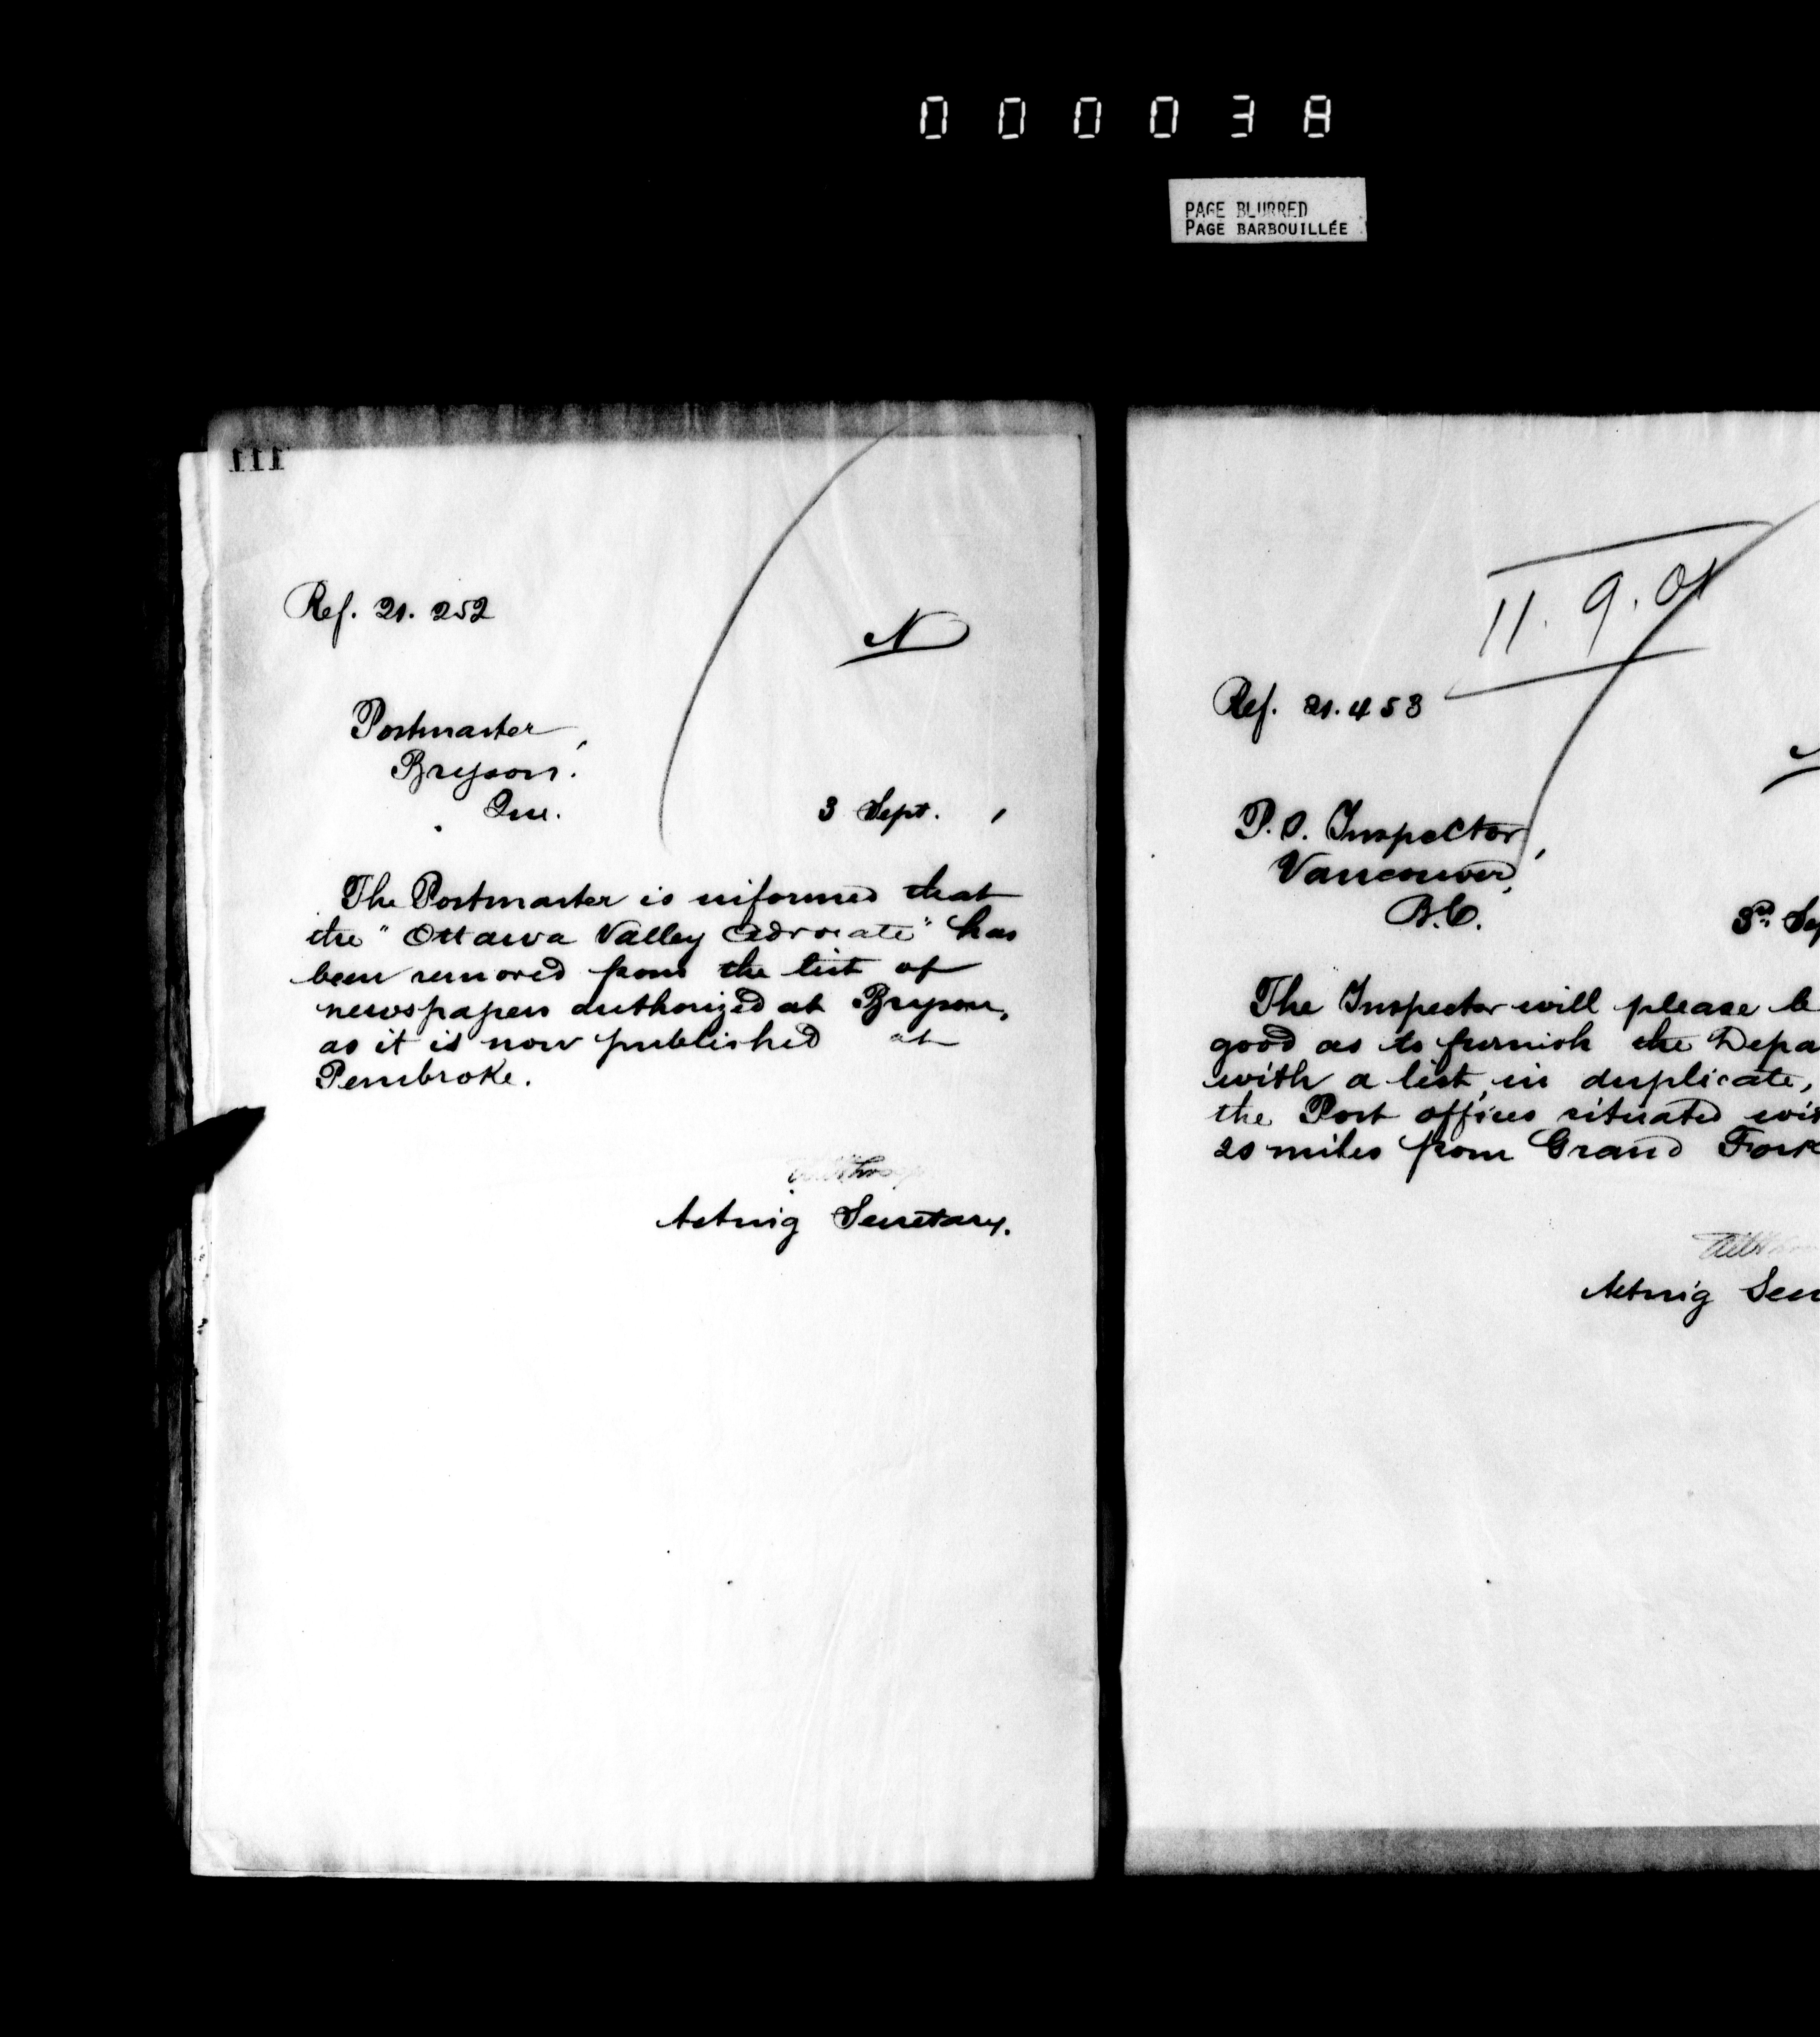 000038
PAGE BLURRED
PAGE BARBOUILLÉE
111
Ref. 21.252
N
Postmaster,
Bryson.
Que.
3 Sept.
The Postmaster is informed that
the "Ottawa Valley Advocate" has
been removed from the list of
newspapers authorized at Bryson,
as it is now published at
Pembroke.
Acting Secretary.
11.9.01
Ref. 21.453
P.O. Inspector,
Vancouver,
B.C.
3rd Sep
The Inspector will please be
good as to furnish the Depa
with a list, in duplicate,
the Post offices situated wit
20 miles from Grand Fork
Acting Secr